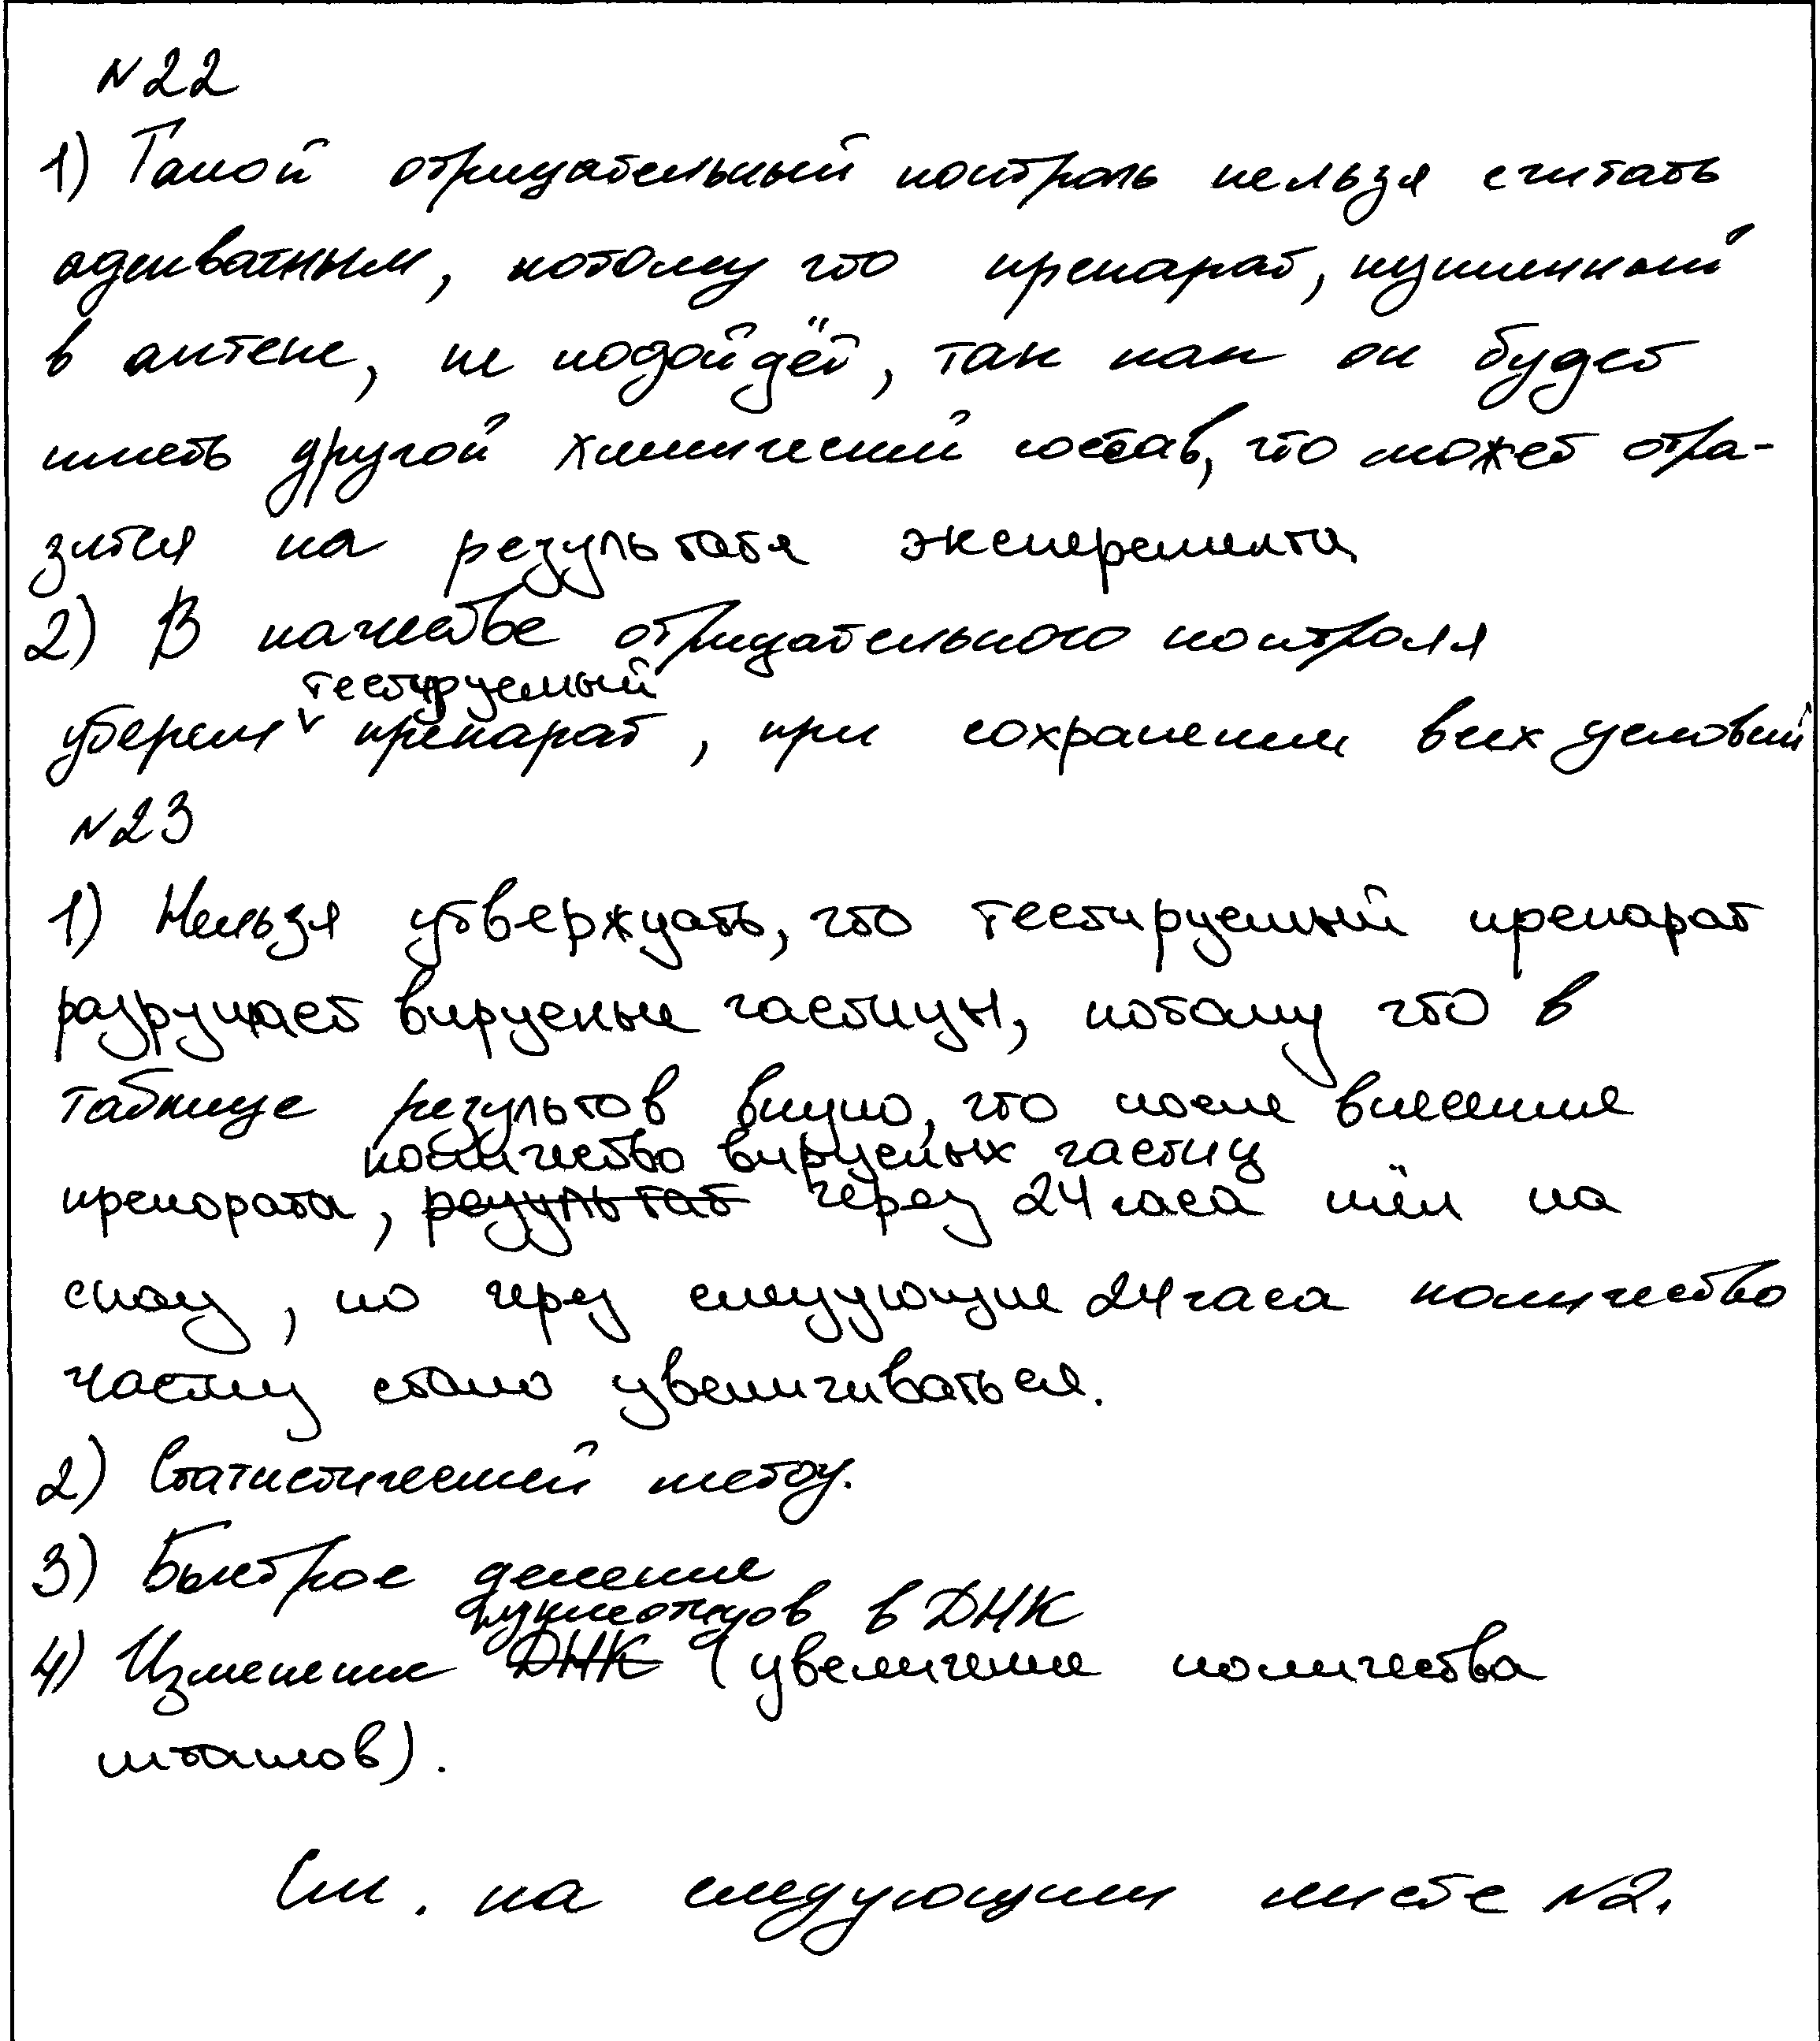 №22
1) Такой отрицательный контроль нельзя считать
адекватным, потому что препарат, купленный
в аптеке, не подойдёт, так как он будет
иметь другой химический состав, что может отра-
зится на результатя эксперемента
2) В качестве отрицательного контроля
уберем тестируемый препарат, при сохранении всех условий
№23
1) Нельзя утверждать, что тестируемый препарат
разрушает вирусные частицы, потому что в
таблице результов видно, что после внесения
препората, ~~результат~~ количество вирусных частиц через 24 часа шёл на
спад, но через следующие 24 часа количество
частиц стало увеличиваться.
2) Статистический метод.
3) Быстрое деление
4) Изменение ~~ДНК~~ нуклеотидов в ДНК (увеличение количества
штаммов).
См. на следующем листе №2.